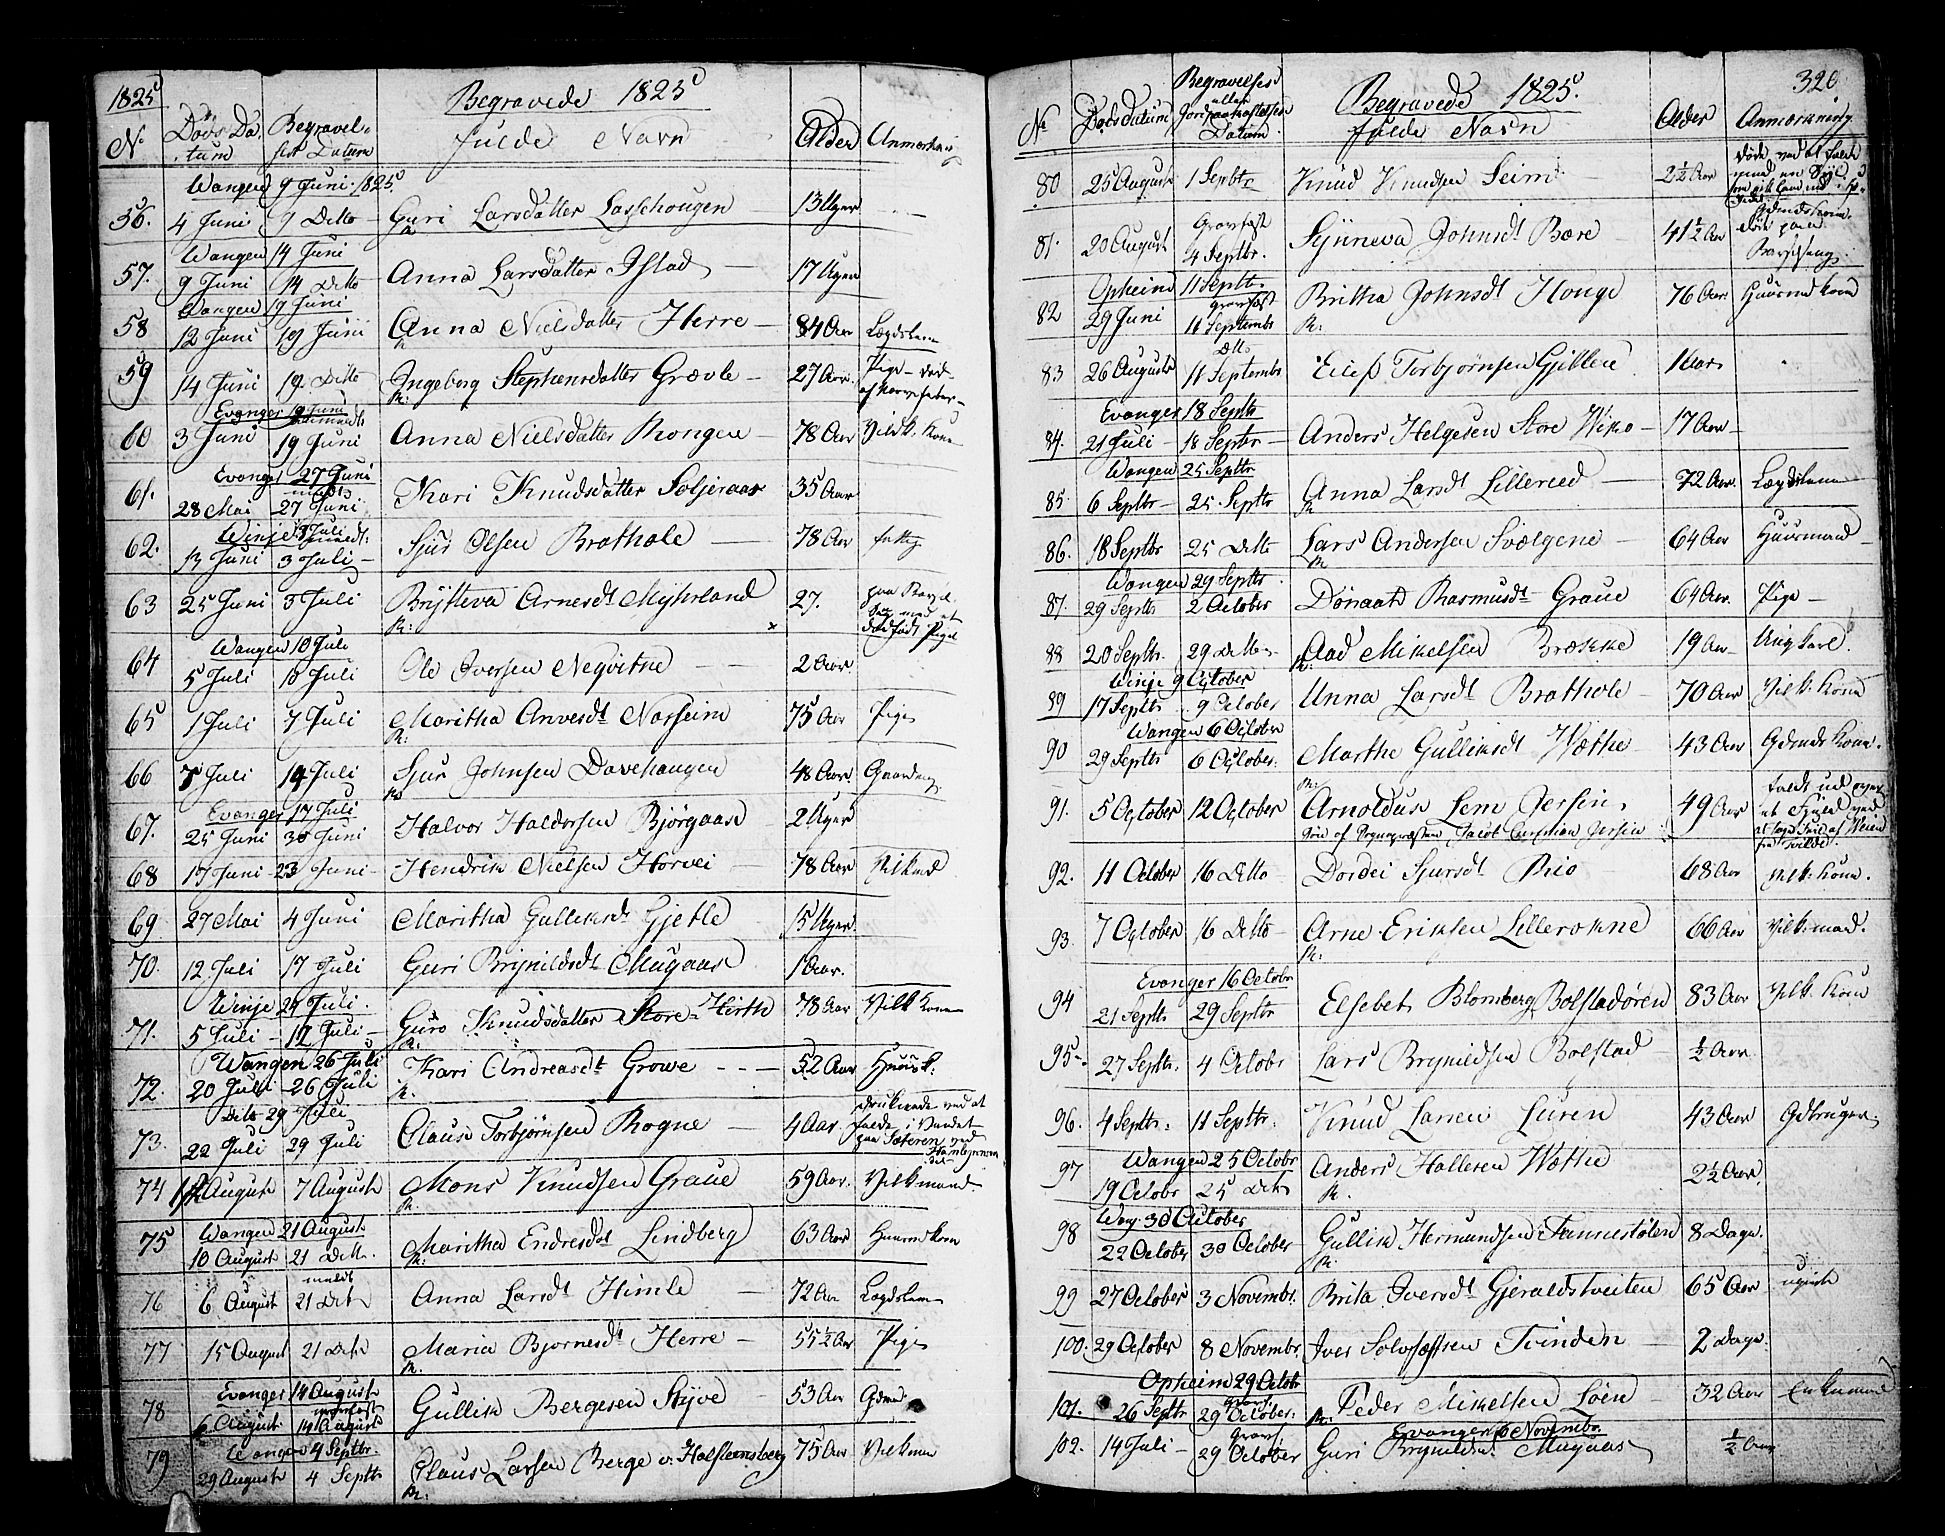 1825
Begravede 1825
No Døds Datum Begravelses Datum Fulde Navn Alder Anmærkning
Wangen 9 Juni 1825
56. 4 Juni 9 Ditto Guri Larsdatter Lasschougen 13 Uger
Wangen 14 Juni
57. 9 Juni 14 Ditto Anna Larsdatter Istad 17 Uger
Wangen 19 Juni
58 12 Juni 19 Juni Anna Nielsdatter Herre 84 Aar Lægdslem
59 14 Juni 19 Ditto Ingeborg Stephensdatter Grævle 27 Aar. Pige - død af
Evanger 19 Juni
60 3 Juni 19 Juni Anna Nielsdatter Rongen 78 Aar Vilk. Kone
Evanger 27 Juni
61. 28 Mai 27 Juni Kari Knudsdatter Soljeraas 35 Aar
Winje 3 Juli
62. 13 Juni 3 Juli Sjur Olsen Brathole 78 Aar fattig
63 25 Juni 3 Juli Bryteva Arnesdt Myhrland 27. paa Barsel Seng med et dødfødt Pige
Wangen 10 Juli
64 5 Juli 10 Juli Ole Iversen Neqvitne 2 Aar
65 1 Juli 7 Juli Maritha Anvesdt Norheim 75 Aar Pige
66 7 Juli 14 Juli Sjur Johnsen Davehaugen 48 Aar Gaardmg.
Evanger 17 Juli
67. 25 Juni 30 Juni Halvor Haldorsen Bjørgaas 2 Uger
68 17 Juni 23 Juni Hendrik Nielsen Horvei 78 Aar Vilkmd
69 27 Mai 4 Juni Maritha Gulliksdt Gjetle 15 Uger
70. 12 Juli 17 Juli Guri Brynildsdt Mugaas 1 Aar.
Winje 24 Juli.
71. 5 Juli 12 Juli Guro Knudsdatter Store Hirth 78 Aar Vilk Kone
Wangen 26 Juli
72. 20 Juli 26 Juli Kari Andreasdt Growe 52 Aar Huusk:
Ditto 29 Juli
73. 22 Juli 29 Juli Claus Torbjørnsen Rogne 4 Aar. druknede ved at falde i Vandet paa Sæteren ved
74 12 August 7 August Mons Knudsen Graue 59 Aar. Vilkmand
Wangen 21 August
75 10 August 21 Ditt. Maritha Endresdt Lindberg 63 Aar Huusmkone
76 6 August 21 Ditto Anna Larsdt Himle 72 Aar Lægdslem
77 15 August 21 Ditto Maria Bjornesdt Herre 55 ½ Aar Pige
Evanger 14 August
78 6 August 14 August Gullik Bergesen Skjve 53 Aar Gdmd
Wangen 4 Septbr.
79 29 August 4 Septbr Claus Larsen Berge v. Halsteensberg 75 Aar Vilkmd
320
Begravede 1825.
No Dødsdatum Begravelses eller Jordpaakastelses Datum. Fulde Navn Alder Anmærkning
80 25 August 1 Septbr Knud Knudsen Seim 2½ Aar døde ved at falde med en
81. 20 August Gravfæst 4 Septbr. Synneva Johnsdt Bære 41 ½ Aar Gdmdskone døde paa Barselseng.
Opheim 11 Septbr.
82 29 Juni gravfæst 11 Septembr Britha Johnsdt Houge 76 Aar Huusmd kone
83 26 August Ditto 11 Septembr Eilef Torbjørnsen Gjellen 1 Aar
Evanger 18 Septbr
84. 21 Juli 18 Septbr Anders Helgesen Store Wike 17 Aar
Wangen 25 Septbr
85. 6 Septbr 25. Septbr Anna Larsdt Lillereed 72 Aar. Lægdslem
86. 18 Septbr 25 Ditto Lars Andersen Svælgene 64 Aar Huusmand
Wangen 29 Septbr.
87. 29 Septbr 2 October Dønaat Rasmusdt Graue 64 Aar. Pige
88 20 Septbr. 29 Ditto Aad Mikelsen Brække 19 Aar Ung Karl.
Winje 9 October
89 17 Septbr 9 October Anna Larsdt Brathole 70 Aar Vilk: Kone
Wangen 6 October
90 29 Septbr 6 October. Marthe Gulliksdt Wæthe 43 Aar Gdmds Kone.
91. 5 October 12 October Arnoldus Lem Jersin, 49 Aar faldt ud over et Fjeld ved
Søn af Sognepræsten Jacob Jersin
92. 11 October 16 Ditto Dordei Sjursdt Rio 68 Aar Vilk: Kone.
93. 7 October 16 Ditto Arne Eriksen Lillerokne 66 Aar Vilk: mand.
Evanger 16 Octobr
94 21 Septbr 29 Septbr Elsebet Blomberg Bolstadøren 83 Aar Vilk. Kone
95. 27 Septbr. 4 Octobr Lars Brynildsen Bolstad ½ Aar
96. 4 Septbr. 11 Septbr. Knud Larsen Luren 43 Aar Gdbruger.
Wangen 25 Octobr
97 19 Octobr 25 Ditto Anders Hallesen Wæthe 2½ Aar.
Wng 30 October
98 22 October 30 October Gullik Hermundsen Fennestølen 8 Dage.
99 27 October 3 Novembr. Brita Iversdt Gjeraldstveiten 65 Aar ugivt
100. 29 October 8 Novembr. Iver Solvfæstsen Tvinden 2 Dage.
Opheim 29 Octobr
101. 26 Septbr 29 October. Peder Mikelsen Løen 32 Aar Enkemand
Evanger 6 Novembr.
102. 14 Juli 29 October Guri Brynildsdt Mugaas ½ Aar